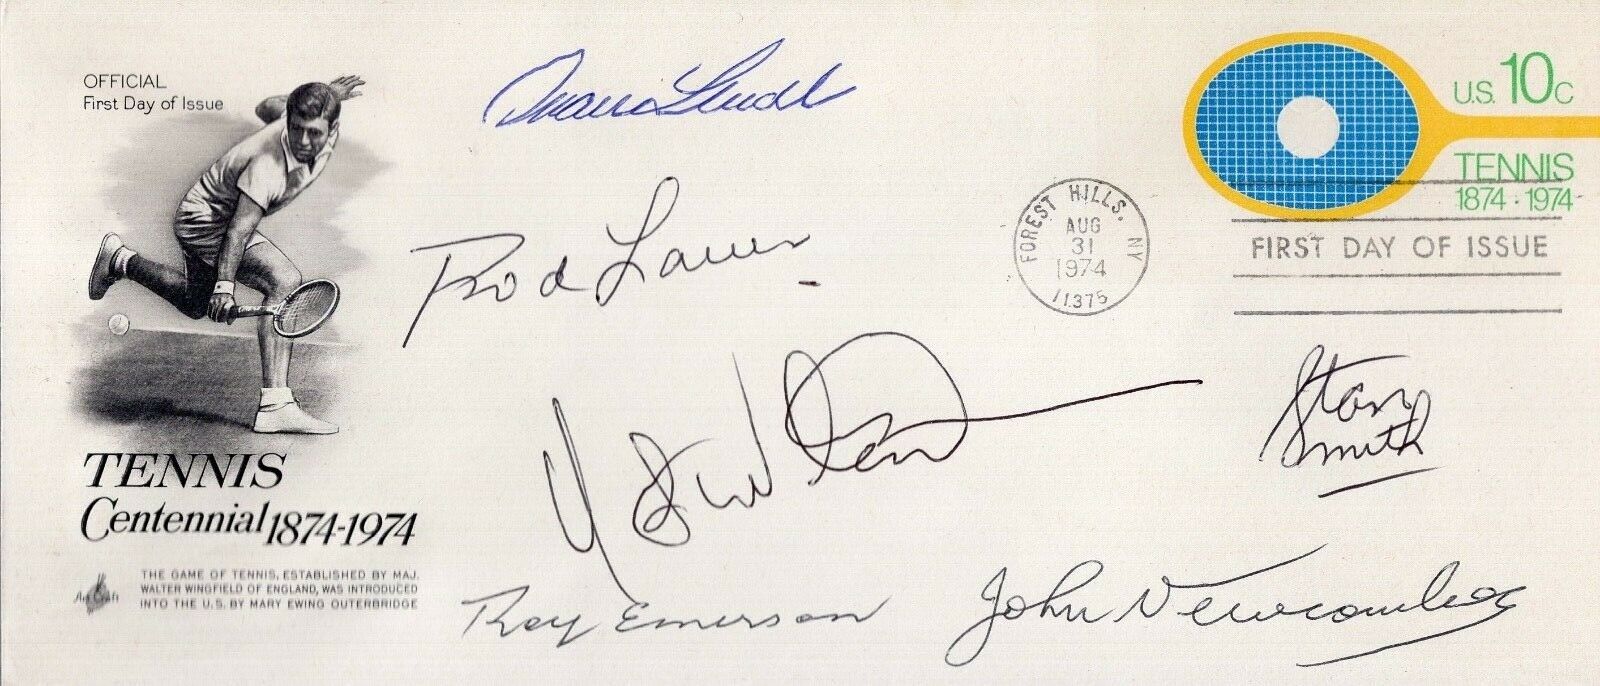 OFFICIAL
First Day of Issue
TENNIS
Centennial 1874-1974
THE GAME OF TENNIS, ESTABLISHED BY MAJ.
WALTER WINGFIELD OF ENGLAND, WAS INTRODUCED
INTO THE U.S. BY MARY EWING OUTERBRIDGE
ArtCraft
Rod Laver
Roy Emerson
John Newcombe
Stan
Smith
FOREST HILLS, NY
AUG
31
1974
11375
U.S. 10c
TENNIS
1874 · 1974
FIRST DAY OF ISSUE